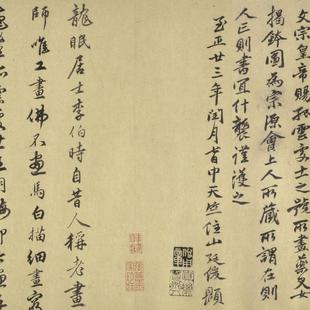 文宗皇帝賜孤雲處士之號所畫藥叉女
揭鉢圖為宗源會上人所藏所謂在則
人亡則書宜什襲謹護之
至正廿三年閏月中天竺住山廷俊題
龍眠居士李伯時自昔人稱老畫
師唯工畫佛不畫馬白描細畫
雲處士王朋梅